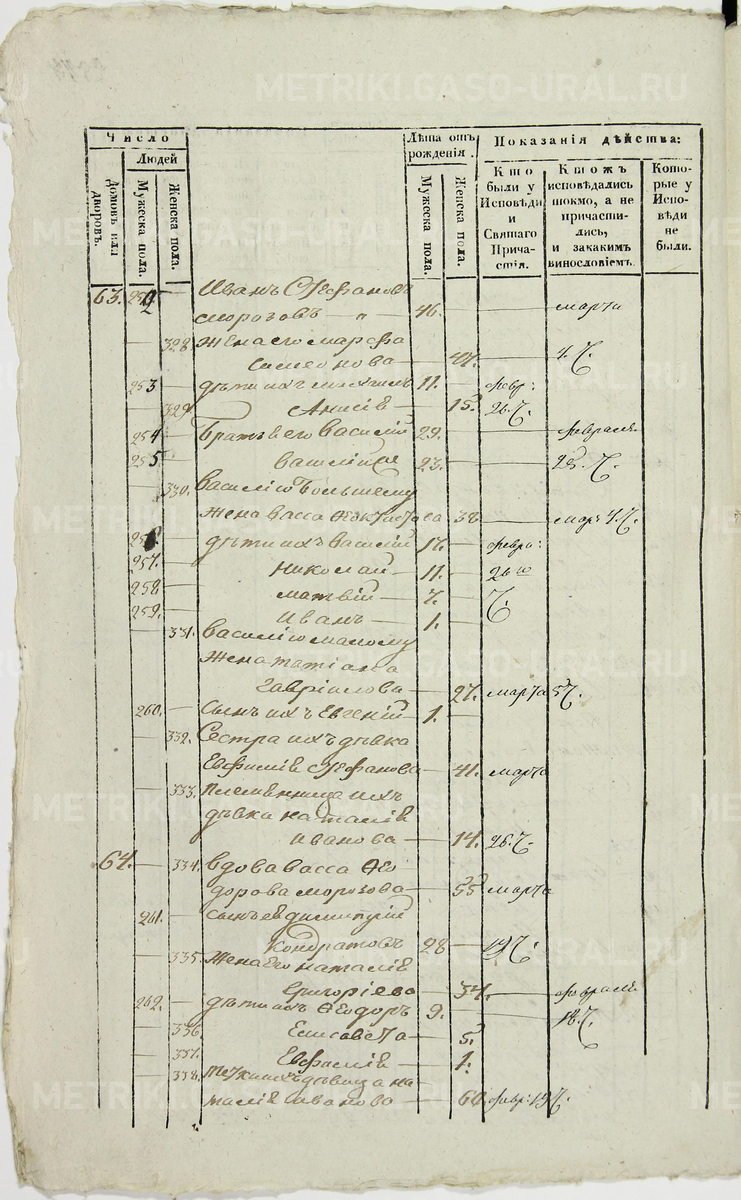 METRIKI.GASO-URAL.RU
Число
Людей
Домовъ или дворовъ.
Мужеска пола.
Женска пола.
Лѣта отъ рожденія.
Мужеска пола.
Женска пола.
Показанія дѣйства:
Кто были у Исповѣди и Святаго Причастія.
Ктожъ исповѣдались токмо, а не причастились, и закакимъ винословіемъ.
Которые у Исповѣди не были.
63. 252 Иванъ Стефановъ
морозовъ 46. марта
328 жена его марфа
Симеонова 4.ч.
253 дѣти ихъ михаилъ 11. февр:
329 Анисія 15. 26.ч.
254 братья его Василій 29. февраля
255 Василій же 23. 25.ч.
330. Василію Большему
жена васса Ѳеоктистова 38 мар: 4.ч.
256 дѣти ихъ василій 17. февра:
257. николай 11. 26го
258 матвій 7. ч.
259. Иванъ 1.
331. Василію малому
жена татіана
Гавріилова 27. марта 5ч.
260. сынъ ихъ Евгеній 1.
332. Сестра ихъ дѣвка
Евфимія Стефанова 41. марта
333. племянница ихъ
дѣвка наталія
Иванова 14. 26.ч.
64. 334. вдова васса Ѳео
дорова морозова 55 марта
261. сынъ ея димитрій
Кондратовъ 28
335. жена его наталія
Григоріева 34. февраля
262. дѣти ихъ Ѳеодоръ 9. 18.ч.
336. Елисавета 5.
337. Евфимія 1.
338. дѣвица на
талія Иванова 60 февр: 19ч.